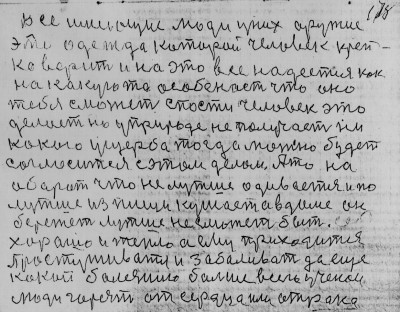 178
все имеющие люди у них оружие
это одежда которой человек креп-
ко верит и на это все надеятся как
на какуюто особеност что оно
тебя сможет спости человек это
делает но у природе не получает ни
какого ущерба тогда можно будет
согласится с этом делом. А то на
оборот что не лутше одивается и по
лутше из пищи кушает а в доме он
бережет лутше не сможет быт.
хорашо и тепло а ему приходится
простуживатц и забаливат да еще
какой балезнию более всего ученои
люди горят от сердца или от рака